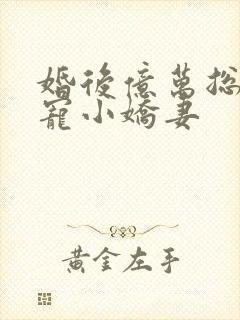 婚後億萬总
寵小嬌妻
黃金左手